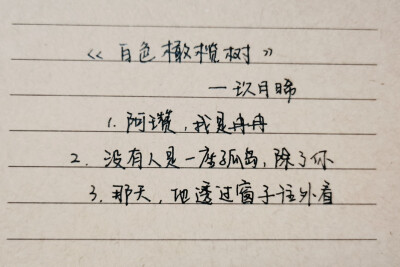 《百色橄榄树》
—玖月晞
1. 阿瓒，我是冉冉
2. 没有人是一座孤岛，除了你
3. 那天，她透过窗子往外看